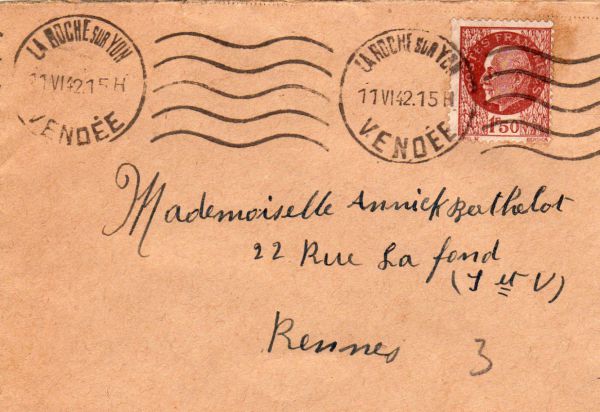 LA ROCHE SUR YON
11 VI 42.15 H
VENDÉE
LA ROCHE SUR YON
11 VI 42.15 H
VENDÉE
POSTES FRANÇAISES
1F50
Mademoiselle Annick Berthelot
22 Rue La fond
(I et V)
Rennes 3